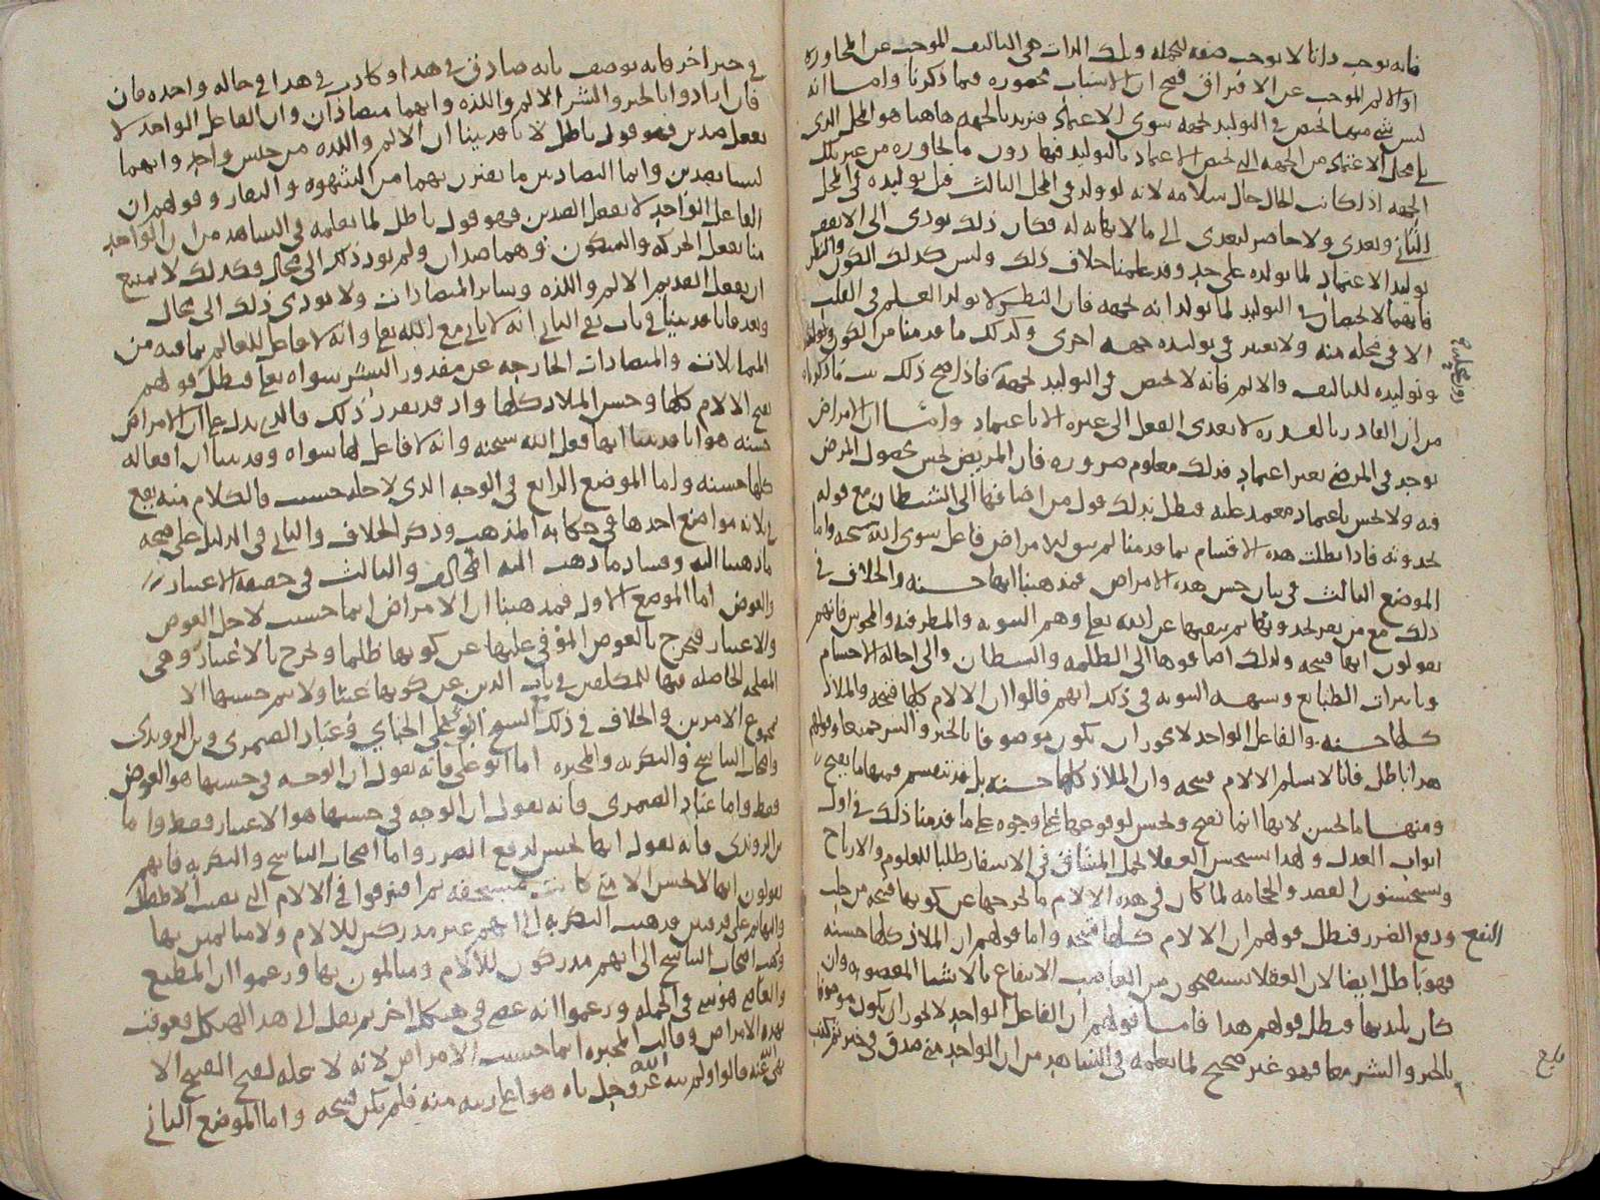 فانه يوجب دانا لا يوجب صفه لجمله وتلك الذات هي التاليف الموجب عن المجاوره
او الالم الموجب عن الافتراق فصح ان الاسباب محصوره فيما ذكرنا واما انه
ليس شي منها يختص في التوليد لجهه سوى الاعتماد فنريد بالجهه هاهنا هو المحل الذي
يلي محل الاعتماد من الجهه التي يختص الاعتماد بالتوليد فيها دون ما يجاوره من غير تلك
الجهه اذا كانت الحال حال سلامه لانه لو ولد في المحل الثالث قبل توليده في المحل
الثاني وتعدى ولا حاصر لتعدى الى ما لا نهايه له فكان ذلك يودي الى الا يقف
توليد الاعتماد لما يولده على حد وقد علمنا خلاف ذلك وليس كذلك الكون والنظر
فانهما لا يختصان في التوليد لما يولدانه لجهه فان النظر لا يولد العلم في القلب
الا في محله منه ولا يعتبر في توليده جهه اخرى وكذلك ما قدمنا من الكون وتوليده
وتوليده للتاليف والالم فانه لا يختص في التوليد لجهه فاذا صح ذلك ثبت ما ذكرناه
من ان القادر بالقدره لا يعدي الفعل الى غيره الا باعتماد واما ان الامراض
توجد في المرضى بغير اعتماد فذلك معلوم ضروره فان المريض يحس بحصول المرض
فيه ولا يحس باعتماد معتمد عليه فبطل بذلك قول من اضافها الى الشيطان مع قوله
بحدوثه فاذا بطلت هذه الاقسام بما قدمنا لم يبق للامراض فاعل سوى الله سبحنه واما
الموضع الثالث في بيان حسن هذه الامراض فمذهبنا انها حسنه والخلاف في
ذلك مع من يقر بحدوثها ثم ينفيها عن الله تعلى وهم الثنويه والمطرفيه والمجوس فانهم
يقولون انها قبيحه ولذلك اضافوها الى الظلمه والشيطان والى احاله الاجسام
وتاثيرات الطبايع وشبهه الثنويه في ذلك انهم قالوا ان الالام كلها قبيحه والملاذ
كلها حسنه والفاعل الواحد لا يجوز ان يكون موصوفا بالخير والشر جميعا وقولهم
هذا باطل فانا لا نسلم ان الالام قبيحه وان الملاذ كلها حسنه بل قد تنقسم فمنها ما يقبح
ومنها ما يحسن لانها انما تقبح وتحسن لوقوعها على وجوه على ما قدمنا ذلك في اول
ابواب العدل ولهذا يستحسن العقلا تحمل المشاق في الاسفار طلبا للعلوم والارباح
ويستحسنون الفصد والحجامه لما كان في هذه الالام ما يخرجها عن كونها قبيحه من جلب
النفع ودفع الضرر فبطل قولهم ان الالام كلها قبيحه واما قولهم ان الملاذ كلها حسنه
فهو باطل ايضا لان العقلا يستقبحون من الغاصب الانتفاع بالاشيا المغصوبه وان
كان يلتذ بها فبطل قولهم هذا فاما قولهم ان الفاعل الواحد لا يجوز ان يكون موصوفا
بالخير والشر معا فهو غير صحيح لما نعلمه في الشاهد من ان الواحد متى صدق في خبر ثم كذب
في خبر اخر فانه يوصف بانه صادق في هذا وكاذب في هذا في حاله واحده فان
فان ارادوا بالخير والشر الالم واللذه وانهما متضادان وان الفاعل الواحد لا
يفعل ضدين فهو قول باطل لانا قد بينا ان الالم واللذه من جنس واحد وانهما
ليسا بضدين وانما التضاد بين ما يقترن بهما من الشهوه والنفار وقولهم ان
الفاعل الواحد لا يفعل الضدين فهو قول باطل لما نعلمه في الشاهد من ان الواحد
منا يفعل الحركه والسكون وهما ضدان ولم يود ذلك الى محال فكذلك لا يمتنع
ان يفعل القديم الالم واللذه وساير المتضادات ولا يودي ذلك الى محال
وبعد فانا قد بينا في باب نفي الثاني انه لا ثاني مع الله تعلى وانه لا فاعل للعالم بما فيه من
المتماثلات والمتضادات الخارجه عن مقدور البشر سواه تعلى فبطل قولهم
بقبح الالام كلها وحسن الملاذ كلها واذ قد تقرر ذلك فالذي يدل على ان الامراض
حسنه هو انا قد بينا انها فعل الله سبحنه وانه لا فاعل لها سواه وقد بينا ان افعاله
كلها حسنه واما الموضع الرابع في الوجه الذي لاجله حسنت فالكلام منه يقع
في ثلاثه مواضع احدها في حكايه المذهب وذكر الخلاف والثاني في الدليل على صحه
ما ذهبنا اليه وفساد ما ذهب اليه المخالف والثالث في حقيقه الاعتبار
والعوض اما الموضع الاول فمذهبنا ان الامراض انما حسنت لاجل العوض
والاعتبار فتخرج بالعوض الموفى عليها عن كونها ظلما وتخرج بالاعتبار وهي
المصلحه الحاصله فيها للمكلفين في باب الدين عن كونها عبثا ولا يتم حسنها الا
بمجموع الامرين والخلاف في ذلك مع الشيخ ابي علي الجباي وعباد الصيمري وبن الروندي
واصحاب التناسخ والبكريه والمجبره اما ابو علي فانه يقول ان الوجه في حسنها هو العوض
فقط واما عباد الصيمري فانه يقول ان الوجه في حسنها هو الاعتبار فقط واما
بن الروندي فانه يقول انها تحسن لدفع الضرر واما اصحاب التناسخ والبكريه فانهم
يقولون انها لا تحسن الا متى كانت مستحقه ثم افترقوا في الالام التي تصيب الاطفال
والبهايم على فرقتين فذهبت البكريه الى انهم غير مدركين للالام ولا متالمين بها
وذهب اصحاب التناسخ الى انهم مدركون للالام ومتالمون بها وزعموا ان المطيع
والعاصي هو شي في الجمله وزعموا انه عصى في هيكل اخر ثم نقل الى هذا الهيكل فعوقب
بهذه الامراض وقالت المجبره انما حسنت الامراض لانه لا عله لقبح القبيح الا
نهي الله عنه قالوا ولم ينه الله عز وجل ناه هو اعلى رتبه منه فلم يكن قبيحه واما الموضع الثاني